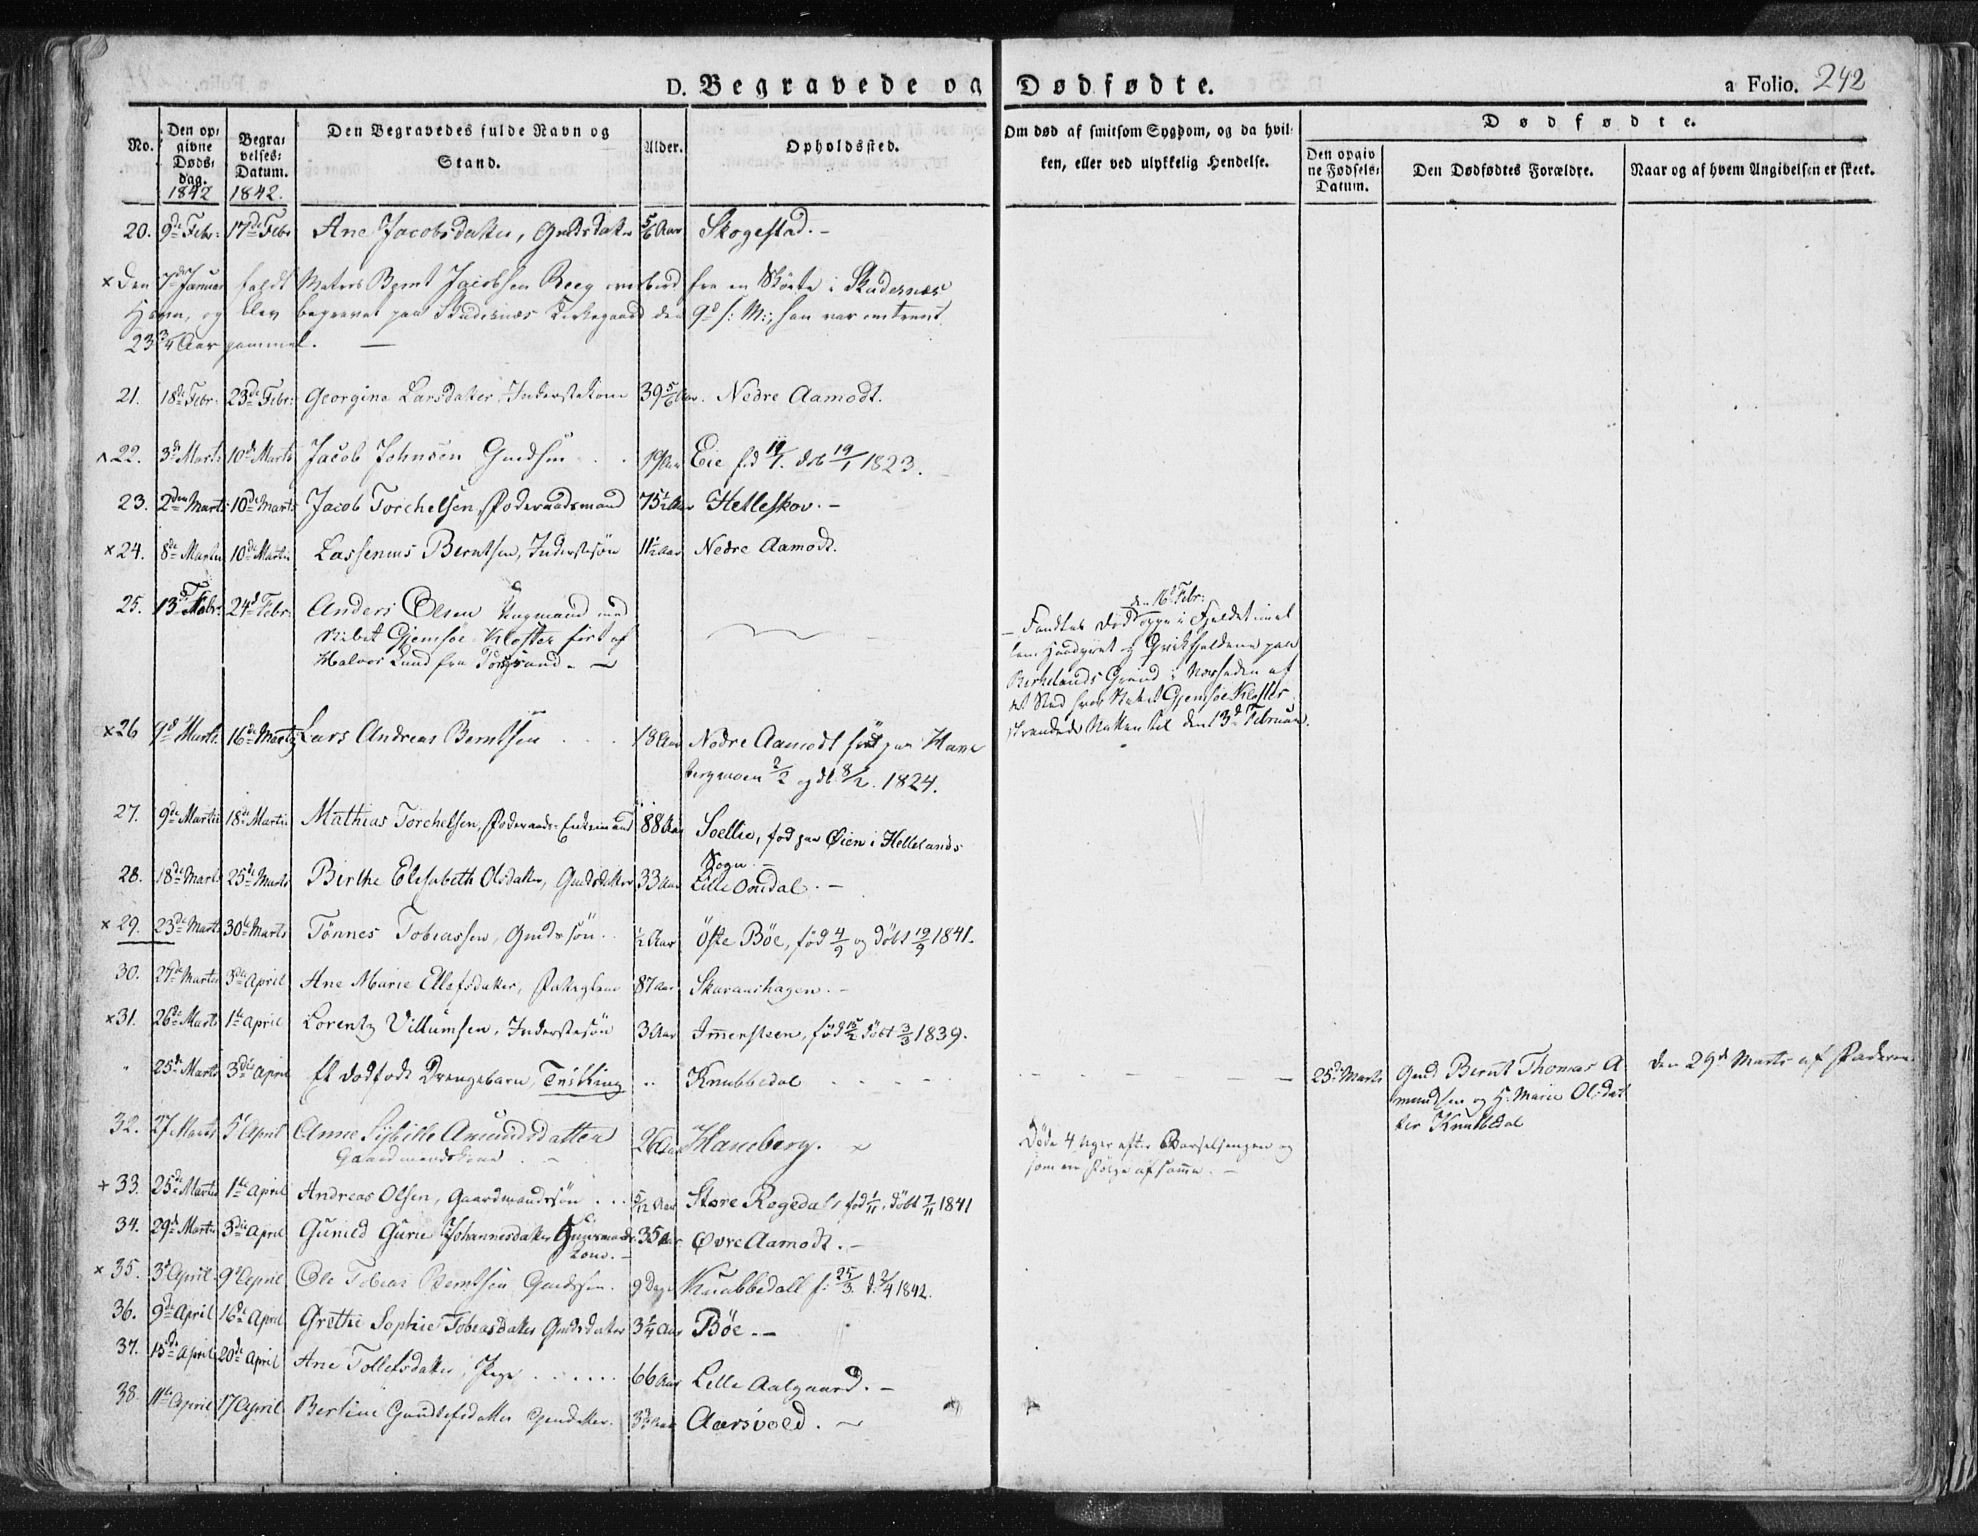 D. Begravede og Dødfødte.
a Folio. 242
No.
Den op- givne Døds- dag. 1842
Begra- velses- Datum. 1842.
Den Begravedes fulde Navn og Stand.
Alder.
Opholdssted.
Om død af smitsom Sygdom, og da hvil- ken, eller ved ulykkelig Hendelse.
Dødfødte.
Den opgiv- ne Fødsels- Datum.
Den Dødfødtes Forældre.
Naar og af hvem Angivelsen er skeet.
20. 9de Febr: 17de Febr Ane Jacobsdatter, Gmdsdatter 5/6 Aar Skogestad. –
× Den 7de Januar faldt Matros Bernt Jacobsen Reeg overbord fra en Skøite i Skudesnæs
Havn, og blev begravet paa Skudesnæs Kirkegaard den 9de s: M:, han var omtrent
23 3/4 Aar gammel. –
21. 18de Febr. 23de Febr: Georgine Larsdatter Inderstekone 39 5/6 Aar. Nedre Aamodt.
22. 3de Marts 10de Marts Jacob Johnsen Gmdsøn . . 19 Aar Eie fød 11/1. døb 19/1 1823.
23. 2den Marts 10de Marts Jacob Torchelsen, Føderaadsmand 75 1/2 Aar Helleskov. –
× 24. 8de Martii 10de Martii Lassenius Berntsen, Inderstesøn 11 1/2 Aar Nedre Aamodt.
25. 13de Febr. 24de Febr. Anders Olsen Ungmand med
Skibet Gjemsøe Kloster ført af
Halvor Lund fra Porsgrund. –
– Fandtes død den 16de Febr: oppe i Fjeldet imel
lem og Qvitfjeldene paa
Birkelands Grund i Nærheden af
det Sted hvor Skibet Gjemsøe Kloster
strandede Natten til den 13de Februar.
× 26 9de Marts. 16de Marts Lars Andreas Berntsen . . . 18 Aar Nedre Aamodt født paa Hane
bergmoen 2/2 og db. 8/2. 1824.
27. 9de Martii 18de Martii Mathias Torchelsen, Føderaads-Enkemand 88 Aar Soellie, fød paa Øien i Hellelands
Sogn. –
28. 18de Marts 25de Marts Birthe Elisabeth Olsdatter, Gmdsdatter 33 Aar Lille Omdal. –
× 29. 23de Marts 30te Marts Tønnes Tobiassen, Gmdssøn. 1/2 Aar Öfte Böe, fød 4/9 og døbt 19/9 1841.
30. 27de Martii 3die April Ane Marie Ellefsdatter, 87 Aar Skaranshagen. –
× 31. 26de Marts 1ste April Lorentz Villumsen, Inderstesøn 3 Aar Immersteen, fød 15/2 döbt 3/3 1839.
25de Marts 3die April Et dødfødt Drengebarn, Tvilling .. Knubbedal – – – – 25de Marts Gmd Bernt Thomas A
mundsen og H. Marie Olsdat
ter Knubbedal
Den 29de Marts af Faderen
32. 27 Marts 5te April Anne Sisille Amundsdatter
Gaardmandskone . –
26 Aar Haneberg.
Døde 4 Uger efter Barselsengen og
som en Følge af samme. –
+ 33. 25de Martii 1ste April Andreas Olsen, Gaardmandssøn . . . 5/12 Aar Store Rægedal, fød 1/11. döbt 7/11 1841
34. 29de Martii 3die April Gunild Gurie Johannesdatter Huusmands
kone. –
35 Aar Øvre Aamodt. –
× 35. 3de April. 9de April Ole Tobias Berntsen Gmdssøn. 9 Dage Knubbedall f: 25/3. d: 2/4 1842.
36. 9de April 16de April Grethe Sophie Tobiasdatter Gmdsdatter 3 1/4 Aar Bøe. –
37. 15de April 20de April Ane Tollefsdatter, Pige . . . . . . 66 Aar Lille Aalgaard. –
38. 11te April 17 April Bertine Gundlefsdatter Gmdatter. 3 1/2 Aar Aarsvold. –